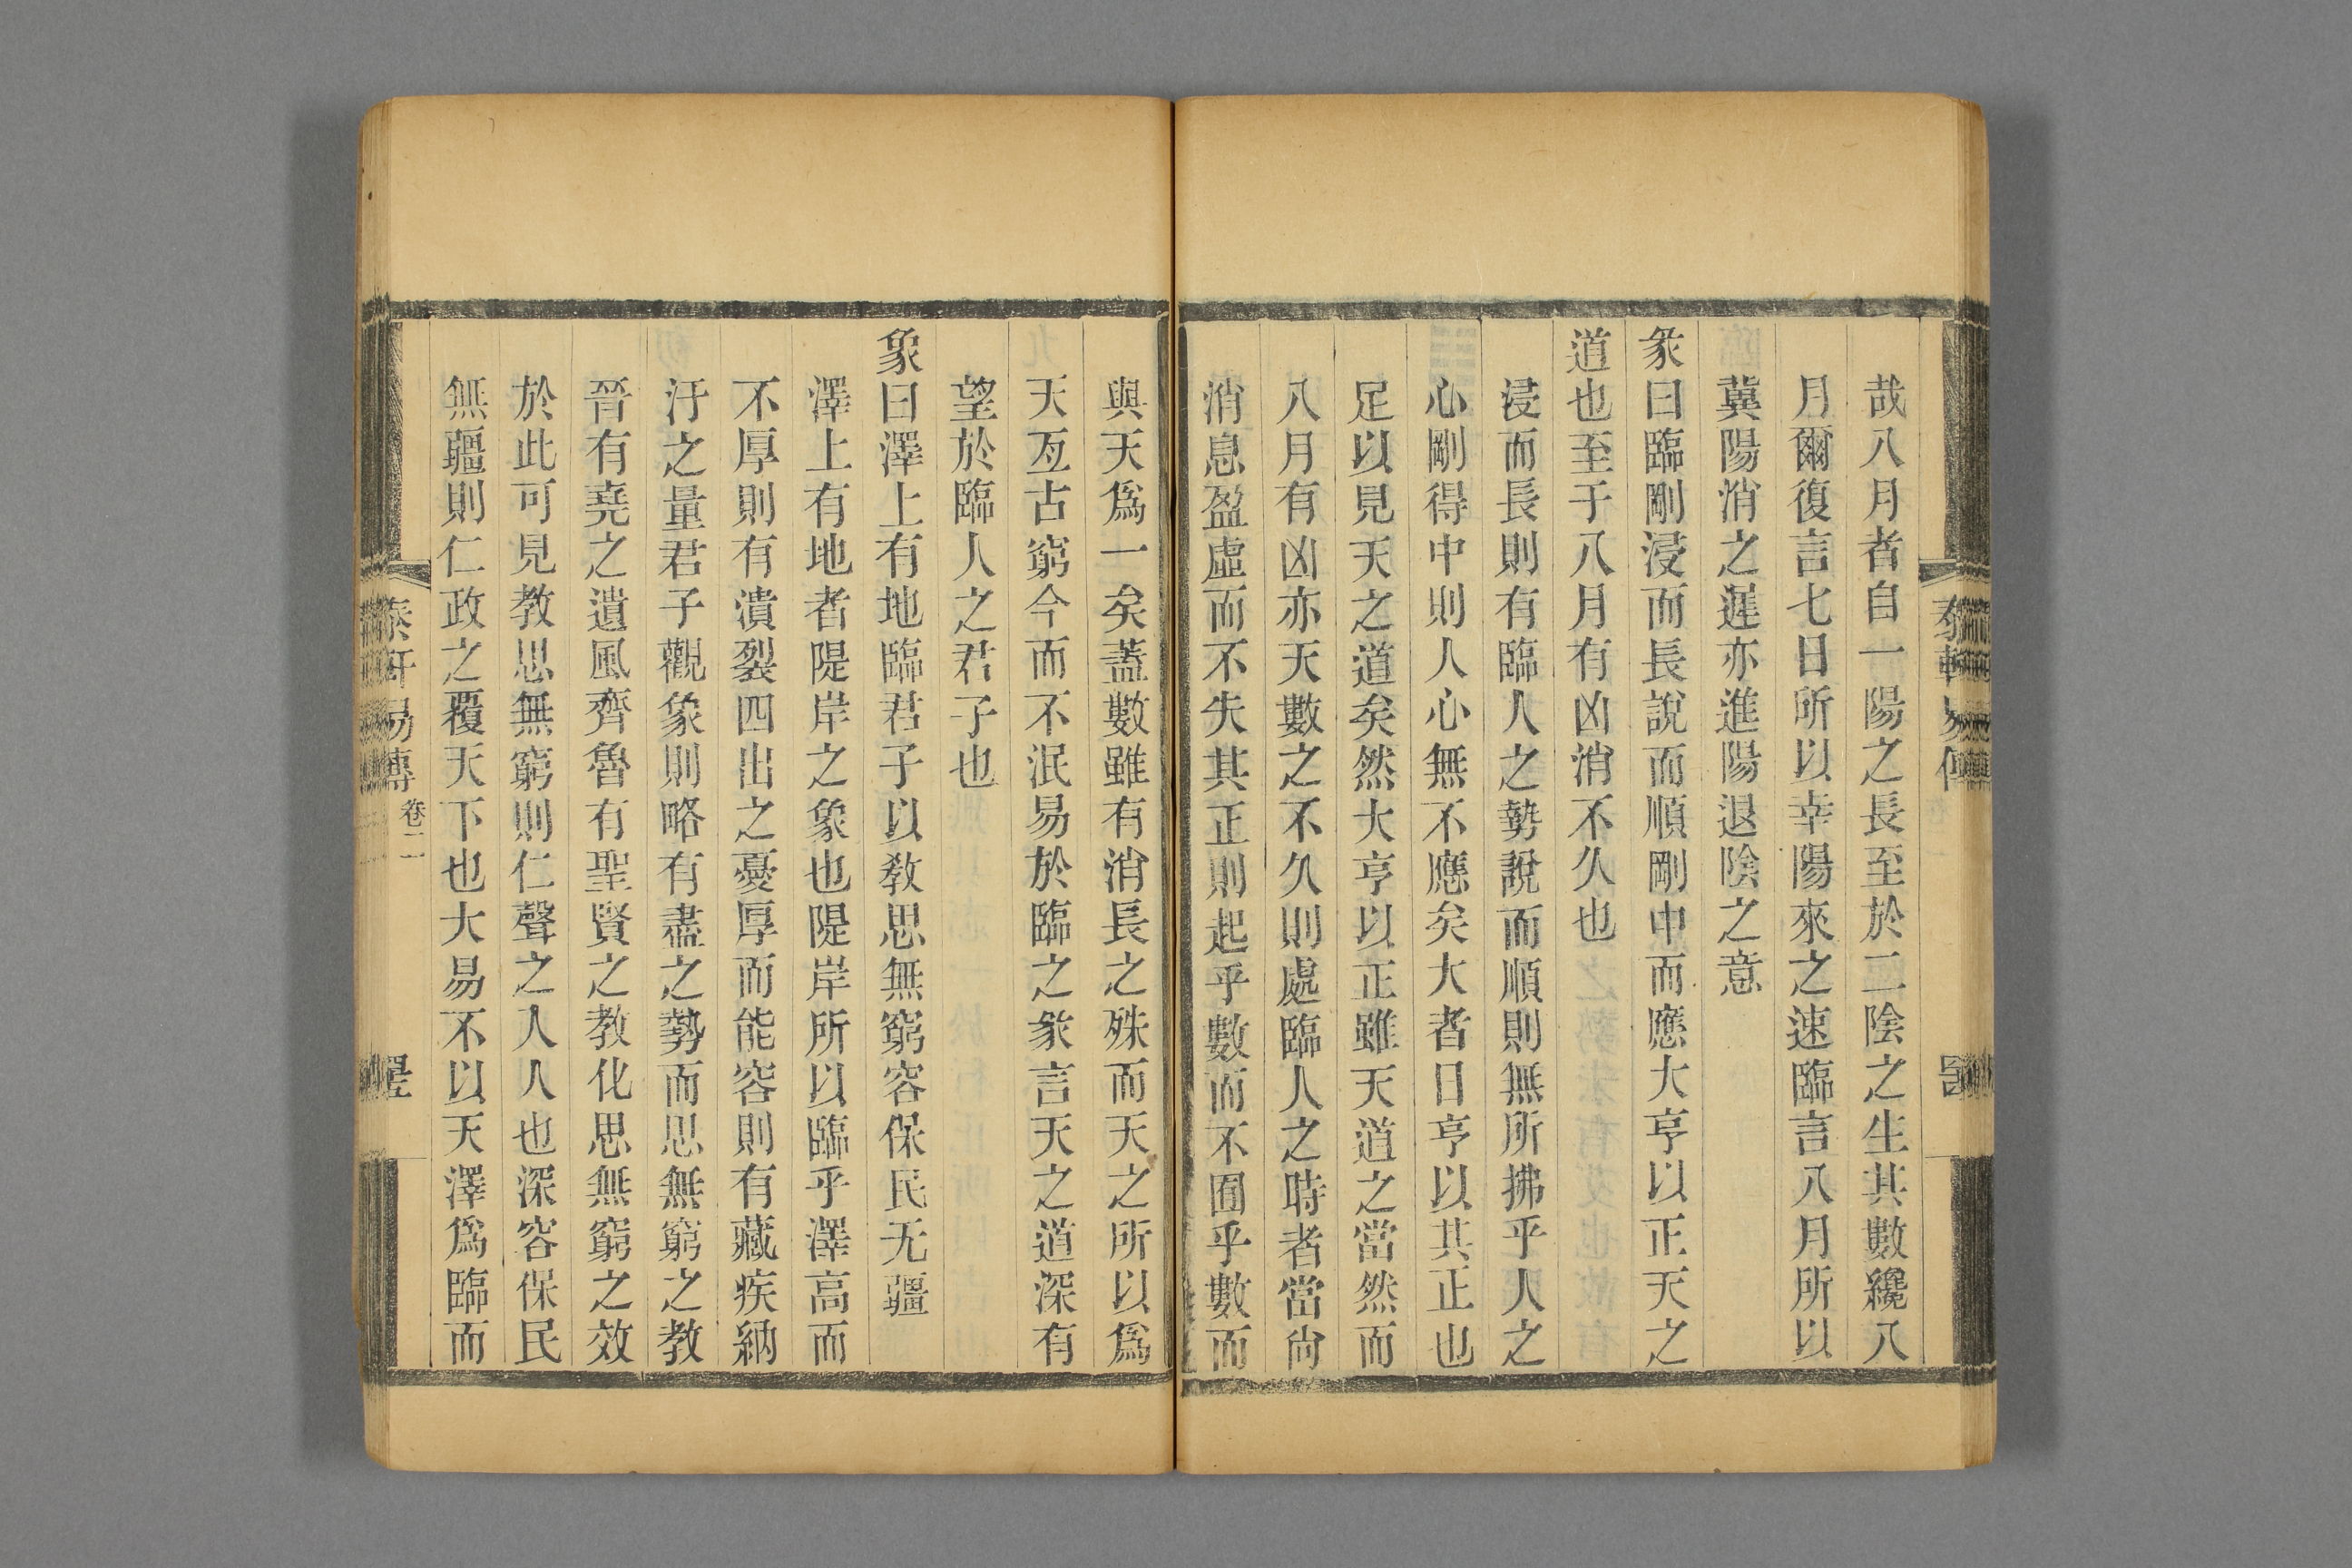 哉八月者自一陽之長至於二陰之生其數纔八
月爾復言七日所以幸陽來之速臨言八月所以
冀陽消之遲亦進陽退陰之意
彖曰臨剛浸而長說而順剛中而應大亨以正天之
道也至于八月有凶消不久也
浸而長則有臨人之勢說而順則無所拂乎人之
心剛得中則人心無不應矣大者日亨以其正也
足以見天之道矣然大亨以正雖天道之當然而
八月有凶亦天數之不久則處臨人之時者當尙
消息盈虛而不失其正則起乎數而不囿乎數而
與天爲一矣蓋數雖有消長之殊而天之所以爲
天亙古窮今而不泯易於臨之彖言天之道深有
望於臨人之君子也
象曰澤上有地臨君子以敎思無窮容保民无疆
澤上有地者隄岸之象也隄岸所以臨乎澤高而
不厚則有潰裂四出之憂厚而能容則有藏疾納
汙之量君子觀象則略有盡之勢而思無窮之教
晉有堯之遺風齊魯有聖賢之教化思無窮之效
於此可見教思無窮則仁聲之入人也深容保民
無疆則仁政之覆天下也大易不以天澤爲臨而
泰軒易傳
卷二